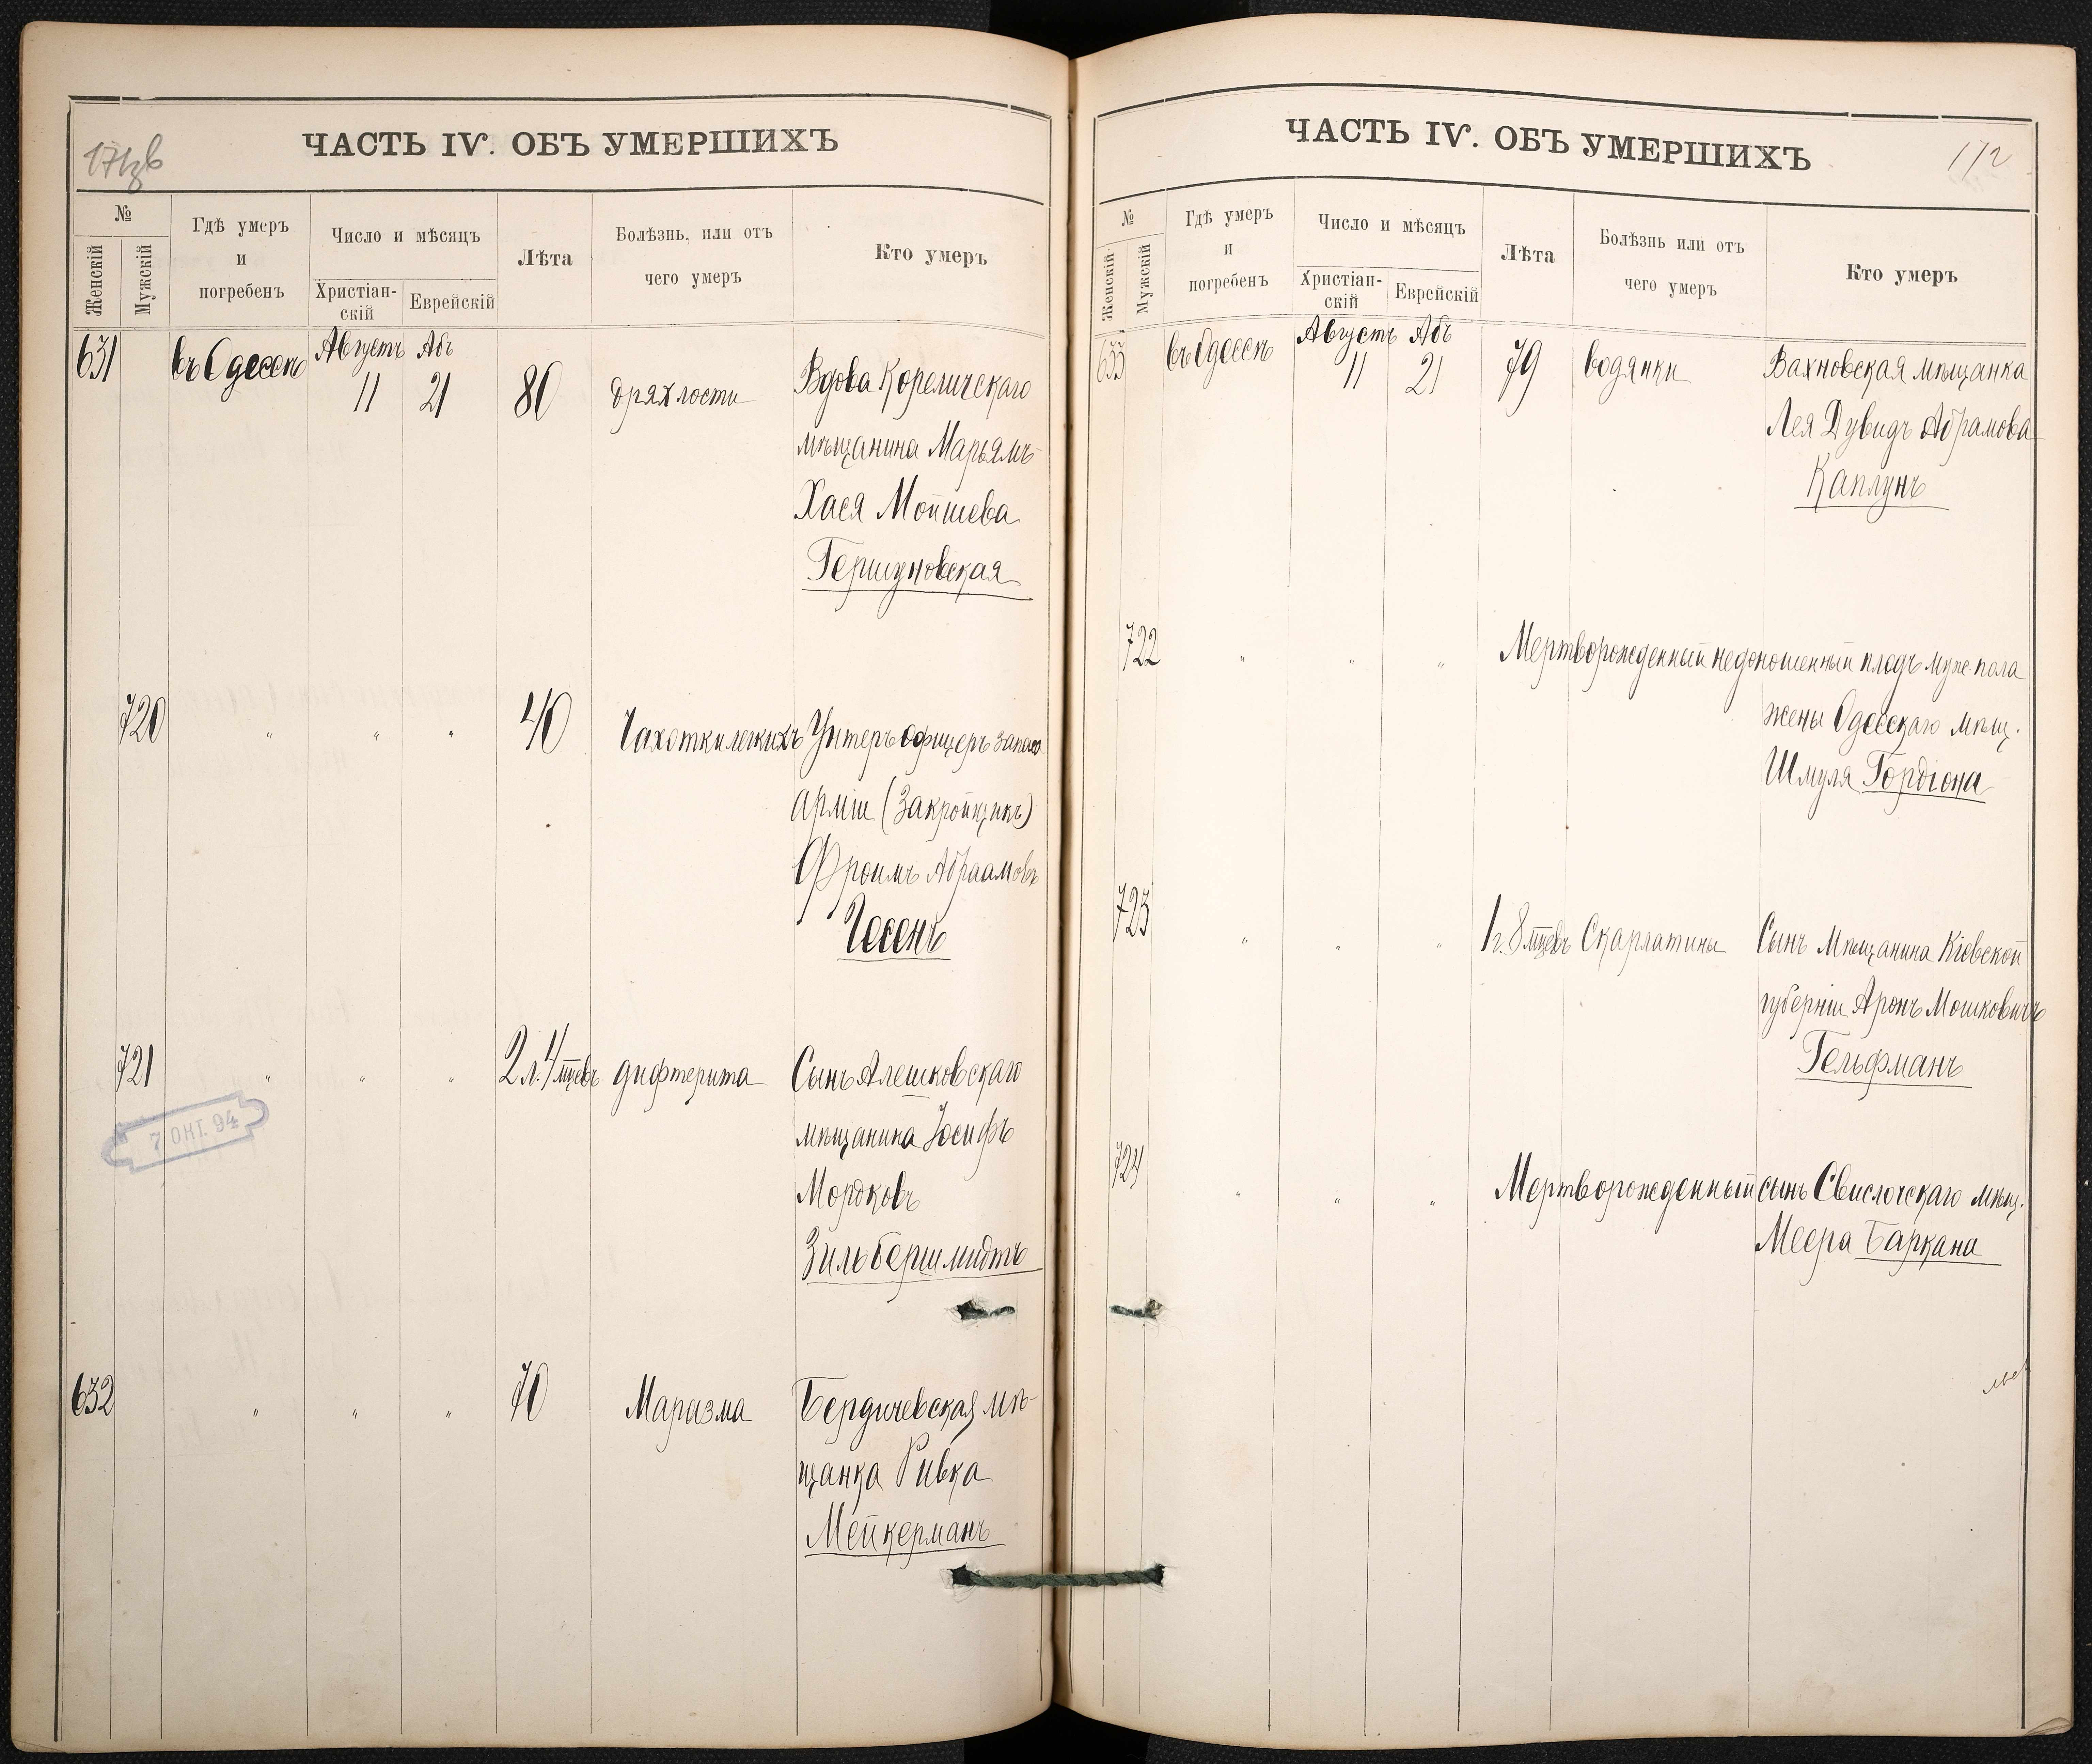 171об
ЧАСТЬ IV. ОБЪ УМЕРШИХЪ
№
Женскій
Мужскій
Гдѣ умеръ
и
погребенъ
Число и мѣсяцъ
Христіан-
скій
Еврейскій
Лѣта
Болѣзнь, или отъ
чего умеръ
Кто умеръ
631 въ Одессѣ Августъ Абъ
11 21 80 дряхлости Вдова Кореличскаго
мѣщанина Марьямъ-
Хася Мойшева
Гершуновская
720 " " " 40 Чахотки легкихъ Унтеръ офицеръ запаса
арміи (Закройщикъ)
Фроимъ Абраамовъ
Чесенъ
721 " " " 2 л. 4 мцевъ дифтерита Сынъ Алешковскаго
мѣщанина Іосифъ
Мордковъ
Зильбершмидтъ
7 ОКТ. 94
632 " " " 70 Маразма Бердичевская мѣ-
щанка Ривка
Мейкерманъ
172
ЧАСТЬ IV. ОБЪ УМЕРШИХЪ
№
Женскій
Мужскій
Гдѣ умеръ
и
погребенъ
Число и мѣсяцъ
Христіан-
скій
Еврейскій
Лѣта
Болѣзнь или отъ
чего умеръ
Кто умеръ
633 въ Одессѣ Августъ Абъ
11 21 79 водянки Вахновская мѣщанка
Лея Дувидъ Абрамова
Каплунъ
722 " " " Мертворожденный недоношенный плодъ муж. пола
жены Одесскаго мѣщ.
Шмуля Гордіона
723 " " " 1 г. 8 мцевъ Скарлатины Сынъ Мѣщанина Кіевской
губерніи Аронъ Мошковичъ
Гельфманъ
724 " " " Мертворожденный сынъ Свислочскаго мѣщ.
Меера Баркана